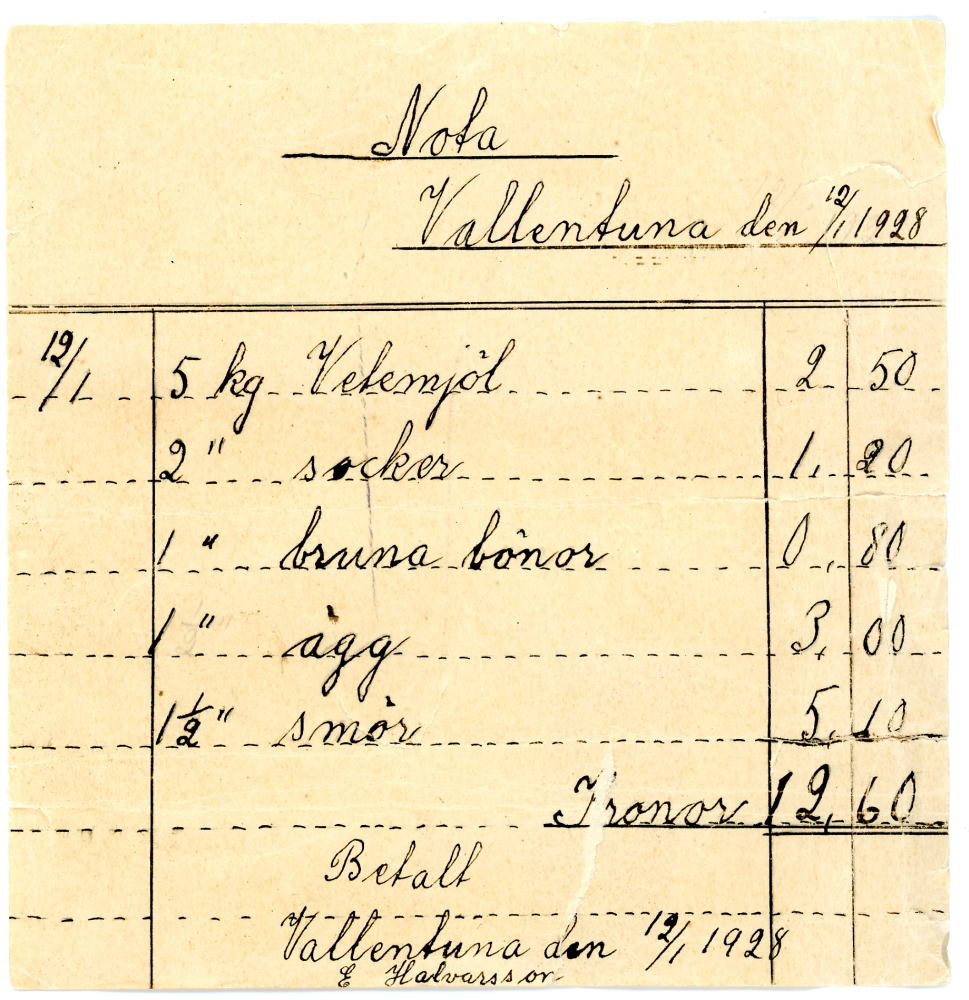 Nota
Vallentuna den 12/1 1928
12/1 5 kg Vetemjöl 2 50
2 " socker 1, 20
1 " bruna bönor 0, 80
1 " ägg 3, 00
1 1/2 " smör 5, 10
Kronor 12, 60
Betalt
Vallentuna den 12/1 1928
E Halvarsson